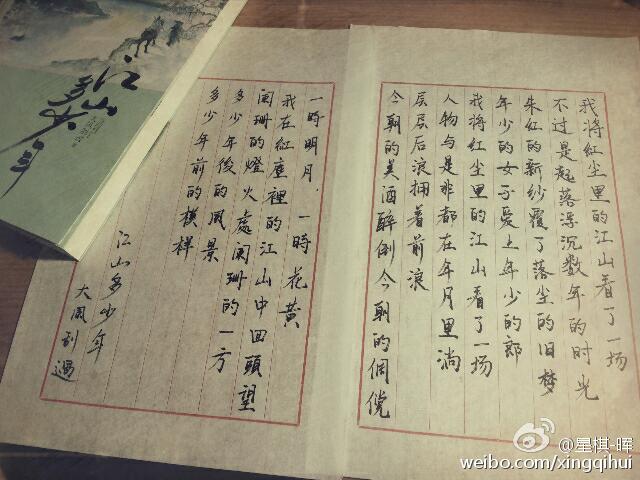 我将红尘里的江山看了一场
不过是起落浮沉数年的时光
朱红的新纱覆了落尘的旧梦
年少的女子爱上年少的郎
我将红尘里的江山看了一场
人物与是非都在年月里淌
层层后浪拥着前浪
今朝的美酒醉倒今朝的倜傥
一時明月,一時花黄
我在紅塵裡的江山中回頭望
闌珊的燈火處闌珊的一方
多少年後的風景
多少年前的模样
江山多少年
大風刮過
江山多少年
@星棋-晖
weibo.com/xingqihui